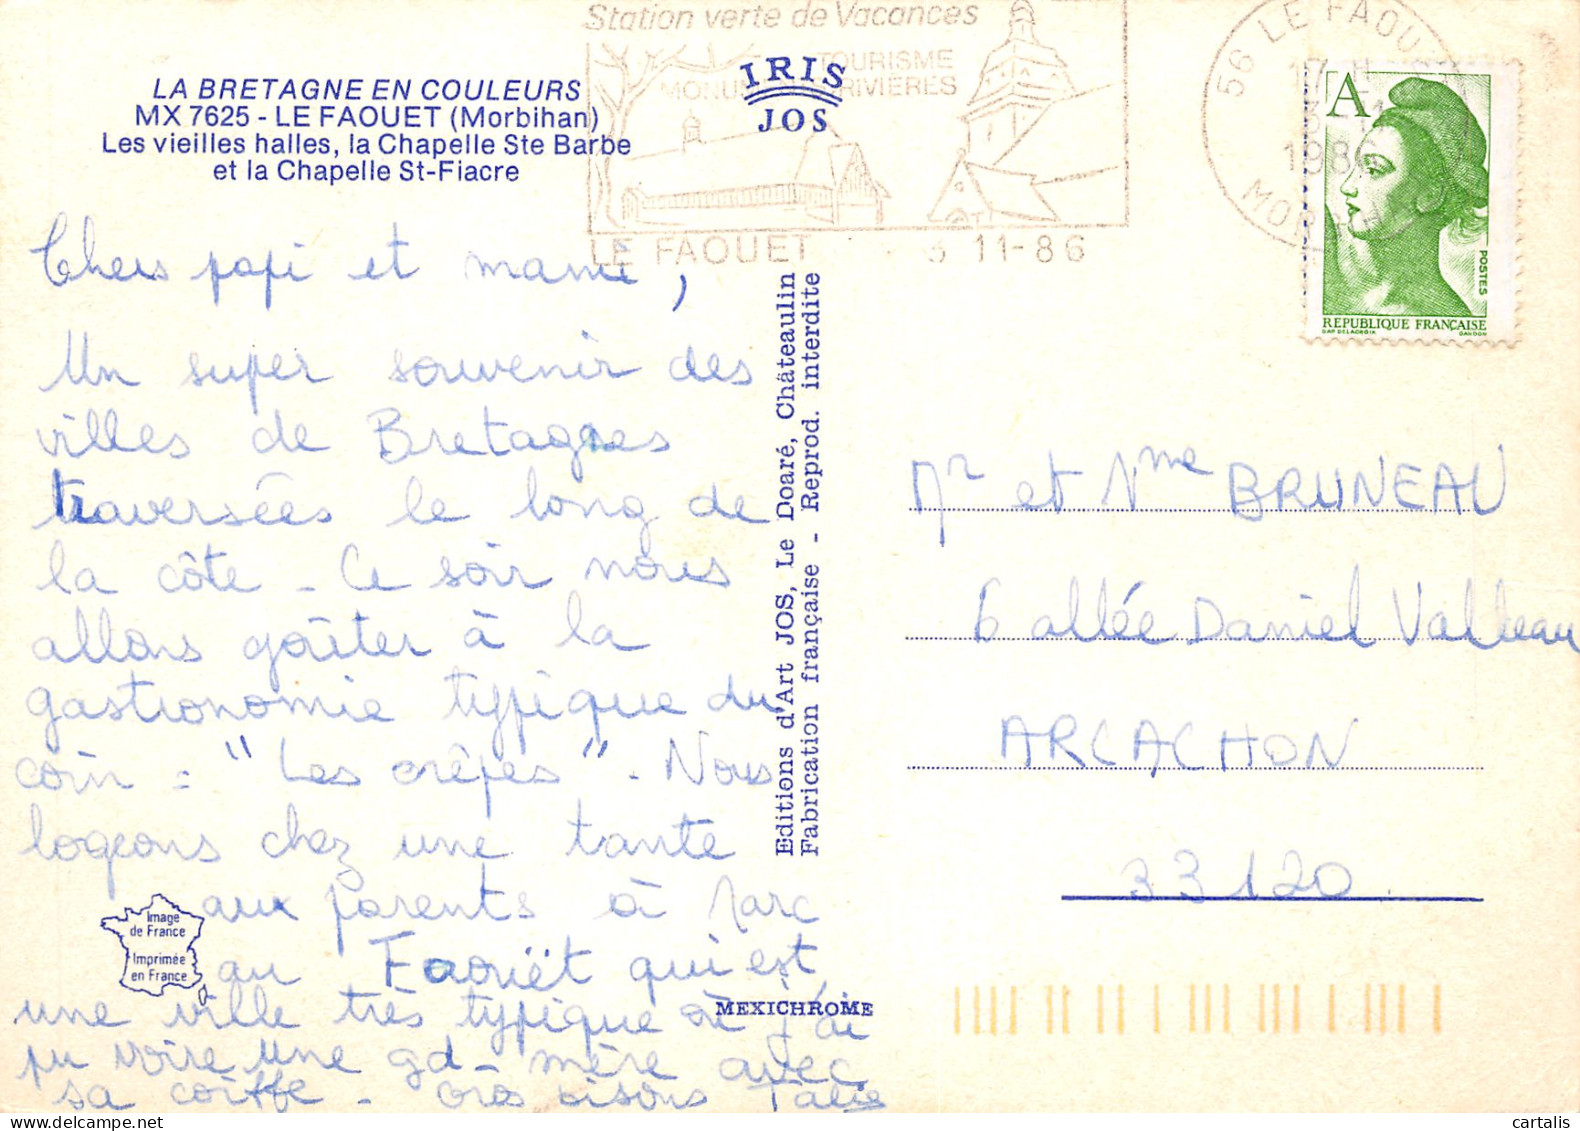 Station verte de Vacances
TOURISME
RIVIÈRES
LE FAOUET
11-86
56 LE FAOU
1986
LA BRETAGNE EN COULEURS
MX 7625 - LE FAOUET (Morbihan)
Les vieilles halles, la Chapelle Ste Barbe
et la Chapelle St-Fiacre
IRIS
JOS
A
POSTES
REPUBLIQUE FRANÇAISE
Chers papi et mami,
Un super souvenir des
villes de Bretagnes
traversées le long de
la côte - Ce soir nous
allons goûter à la
gastronomie typique du
coin = "Les crêpes". Nous
logeons chez une tante
aux parents à Marc
au Faouët qui est
une ville très typique où j'ai
pu voire une gd-mère avec
sa coiffe - Gros bisous
Editions d'Art JOS, Le Doaré, Châteaulin
Fabrication française - Reprod. interdite
Mr et Mme BRUNEAU
6 allée Daniel
ARCACHON
33120
Image
de France
Imprimée
en France
MEXICHROME
cartalis